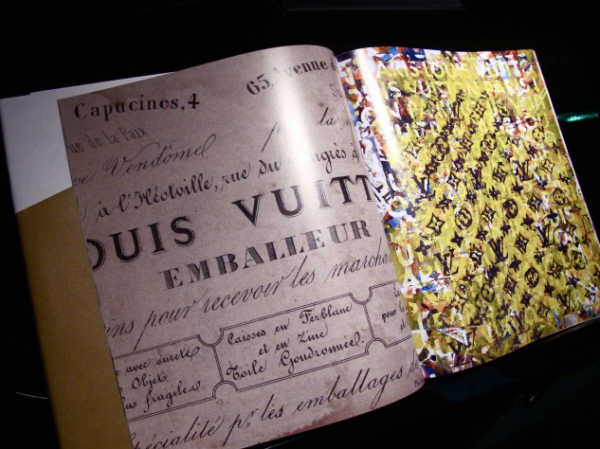 Capucines, 4
65, Avenue
rue de la Paix
pr la
Vendôme
à l'Héotville, rue du Congrès
OUIS VUITT
EMBALLEUR
pour recevoir les marcha
avec sureté
Objets
us fragiles.
Caisses en Ferblanc
et en Zinc
Toile Goudronnée.
pécialité pr les emballages